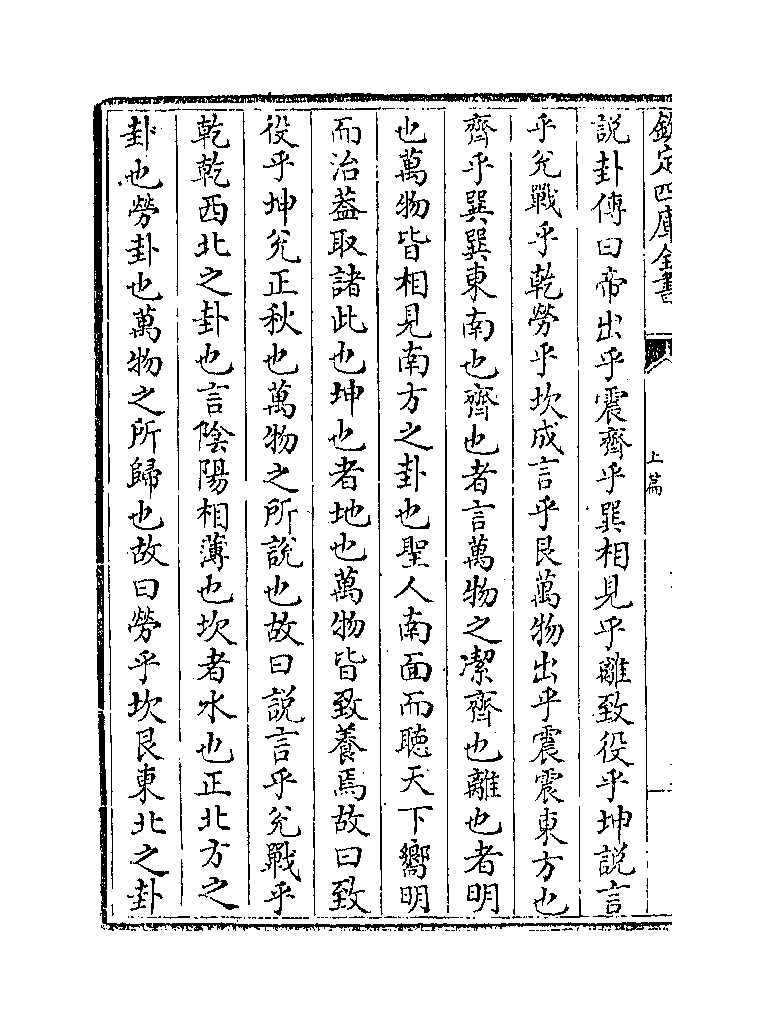 欽定四庫全書
上篇
說卦傳曰帝出乎震齊乎巽相見乎離致役乎坤說言
乎兌戰乎乾勞乎坎成言乎艮萬物出乎震震東方也
齊乎巽巽東南也齊也者言萬物之潔齊也離也者明
也萬物皆相見南方之卦也聖人南面而聽天下嚮明
而治葢取諸此也坤也者地也萬物皆致養焉故曰致
役乎坤兌正秋也萬物之所說也故曰說言乎兌戰乎
乾乾西北之卦也言陰陽相薄也坎者水也正北方之
卦也勞卦也萬物之所歸也故曰勞乎坎艮東北之卦